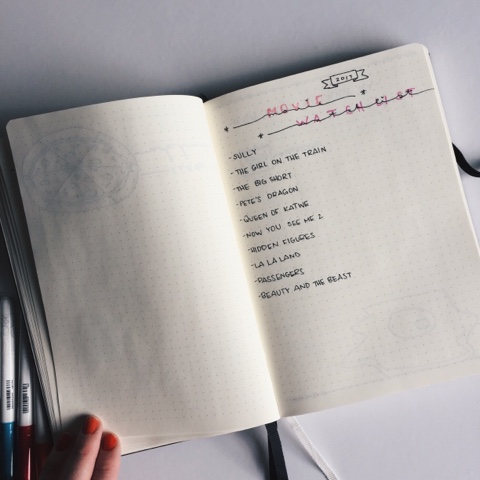 2017
MOVIE
WATCH LIST
-SULLY
-THE GIRL ON THE TRAIN
-THE BIG SHORT
-PETE'S DRAGON
-QUEEN OF KATWE
-NOW YOU SEE ME 2
-HIDDEN FIGURES
-LA LA LAND
-PASSENGERS
-BEAUTY AND THE BEAST